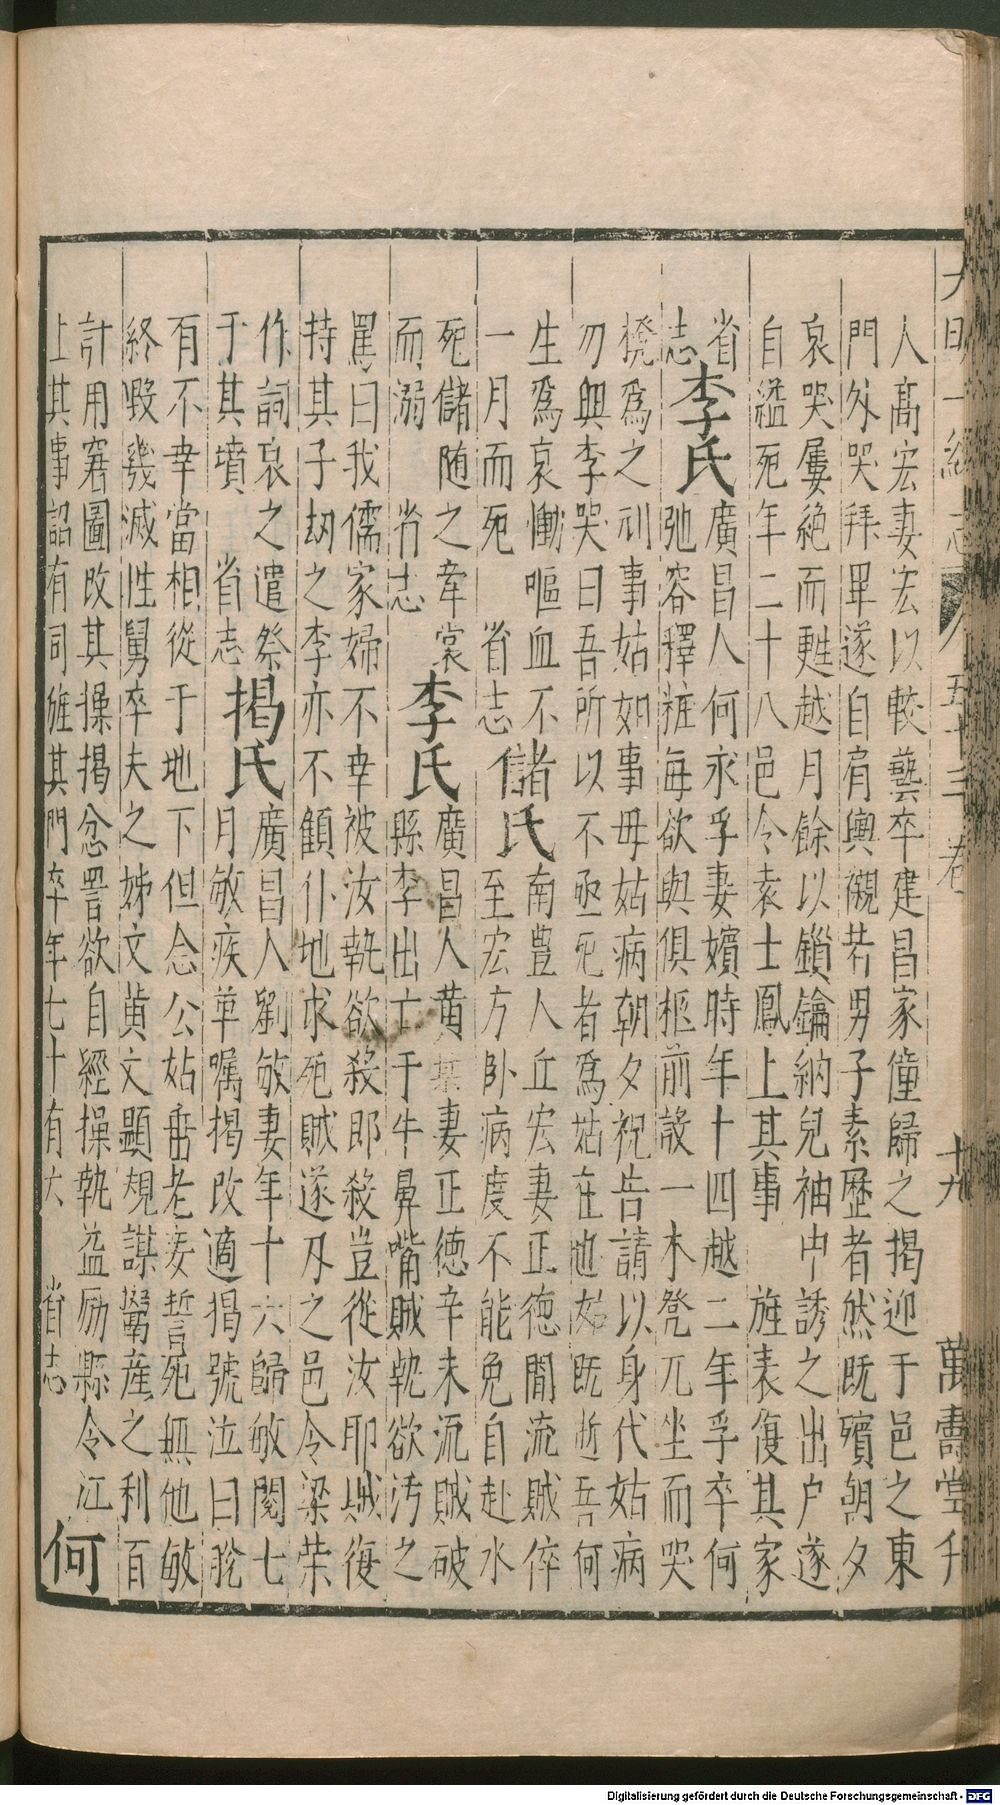 大明一統志 五十三卷 十九 萬壽堂刊
人高宏妻宏以較藝卒建昌家僮歸之揭迎于邑之東
門外哭拜畢遂自肩輿襯若男子素歷者然既殯朝夕
哀哭屢絕而甦越月餘以鎖鑰納兒袖中誘之出户遂
自縊死年二十八邑令袁士鳳上其事 旌表復其家
省志
李氏
廣昌人何永孚妻嬪時年十四越二年孚卒何
弛容釋粧每欲與俱柩前設一木凳兀坐而哭
櫈為之刓事姑如事母姑病朝夕祝告請以身代姑病
勿興李哭曰吾所以不亟死者為姑在也姑既逝吾何
生為哀慟嘔血不
一月而死 省志
儲氏
南豊人丘宏妻正德間流賊倅
至宏方卧病度不能免自赴水
死儲随之牽裳
而溺 省志
李氏
廣昌人黄 妻正德辛未流賊破
縣李出亡于牛鼻嘴賊執欲汚之
罵曰我儒家婦不幸被汝執欲殺即殺豈從汝耶賊復
持其子刼之李亦不顧仆地求死賊遂刃之邑令梁荣
作詞哀之遣祭
于其墳 省志
揭氏
廣昌人劉敏妻年十六歸敏閱七
月敏疾革嘱揭改適揭號泣曰脫
有不幸當相從于地下但念公姑耋老妾誓死無他敏
終毀幾滅性舅卒夫之姊文黄文顯覬謀鬻産之利百
計用窘圖改其操揭忿詈欲自經操執益励縣令江
上其事詔有司旌其門卒年七十有六 省志
何
Digitalisierung gefördert durch die Deutsche Forschungsgemeinschaft - DFG